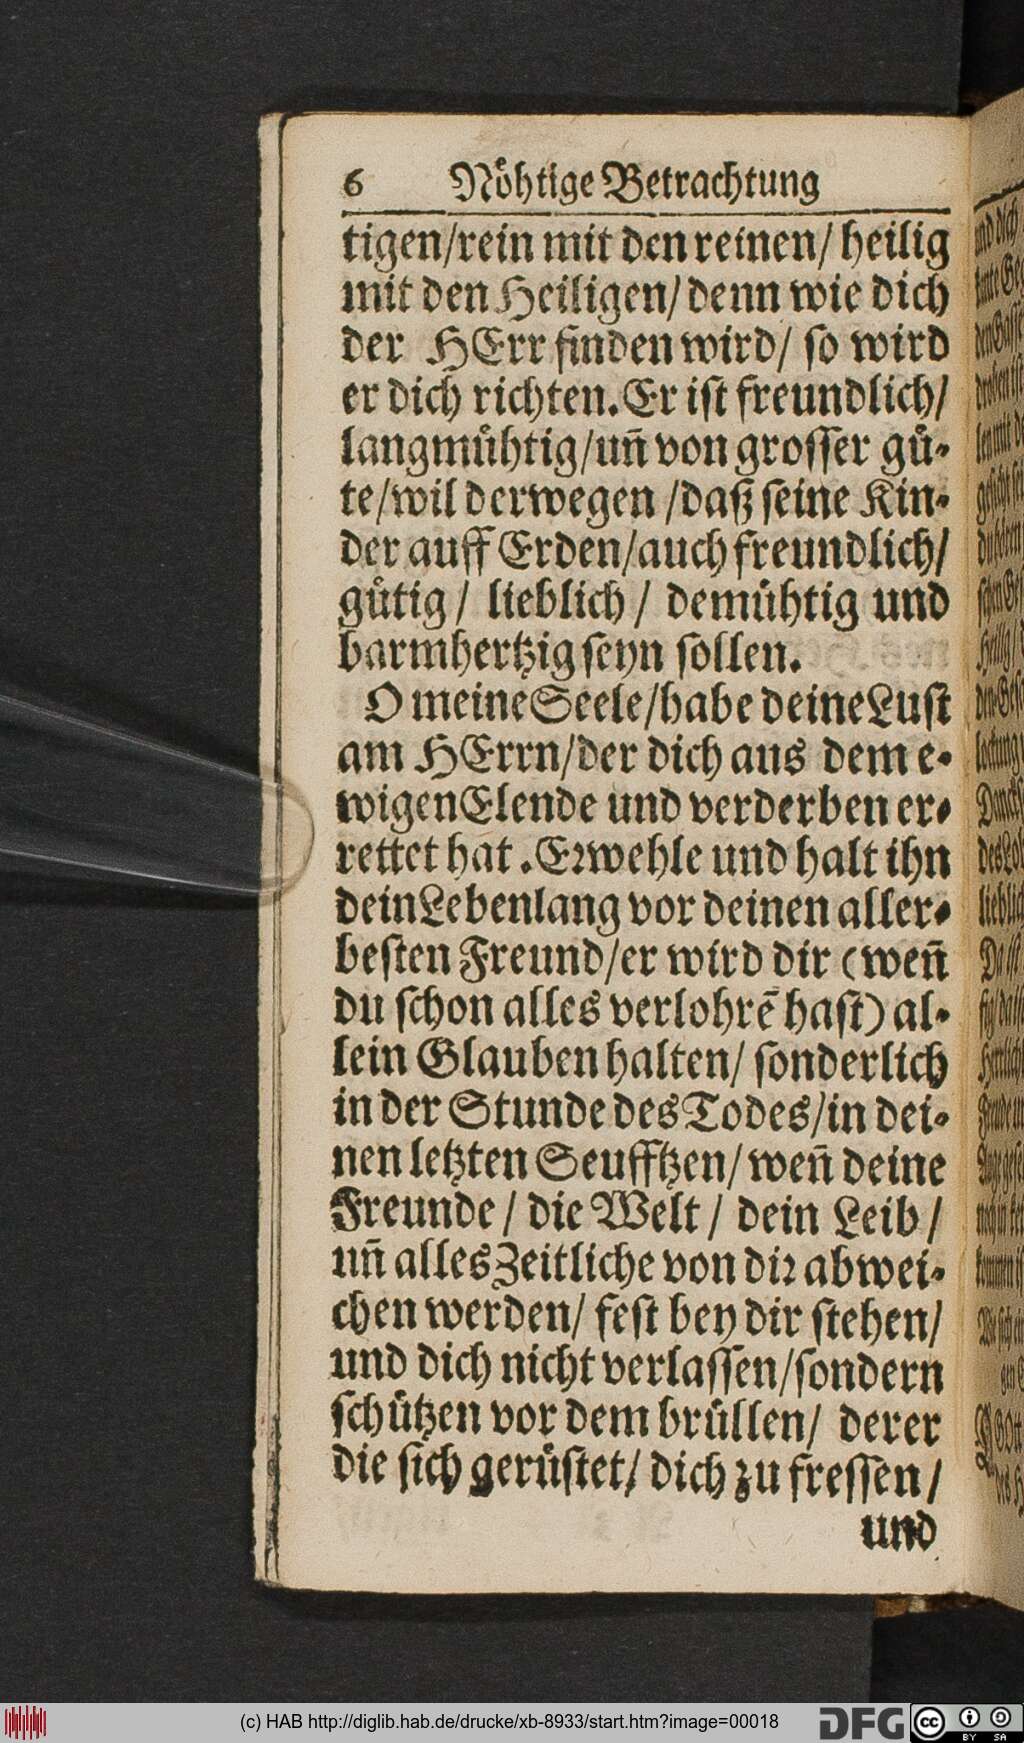 6 Nöhtige Betrachtung
tigen/rein mit den reinen/ heilig
mit den Heiligen/ denn wie dich
der HErr finden wird/ so wird
er dich richten. Er ist freundlich/
langmühtig/un̄ von grosser gü-
te/wil derwegen /daß seine Kin-
der auff Erden/auch freundlich/
gütig/ lieblich/ demühtig und
barmhertzig seyn sollen.
O meine Seele/habe deine Lust
am HErrn/der dich aus dem e-
wigen Elende und verderben er-
rettet hat. Erwehle und halt ihn
dein Lebenlang vor deinen aller-
besten Freund/er wird dir (wen̄
du schon alles verlohrē hast) al-
lein Glauben halten/ sonderlich
in der Stunde des Todes/in dei-
nen letzten Seufftzen/ wen̄ deine
Freunde / die Welt / dein Leib /
un̄ alles Zeitliche von dir abwei-
chen werden/ fest bey dir stehen/
und dich nicht verlassen/sondern
schützen vor dem brüllen/ derer
die sich gerüstet/ dich zu fressen/
und
(c) HAB http://diglib.hab.de/drucke/xb-8933/start.htm?image=00018
DFG cc BY SA